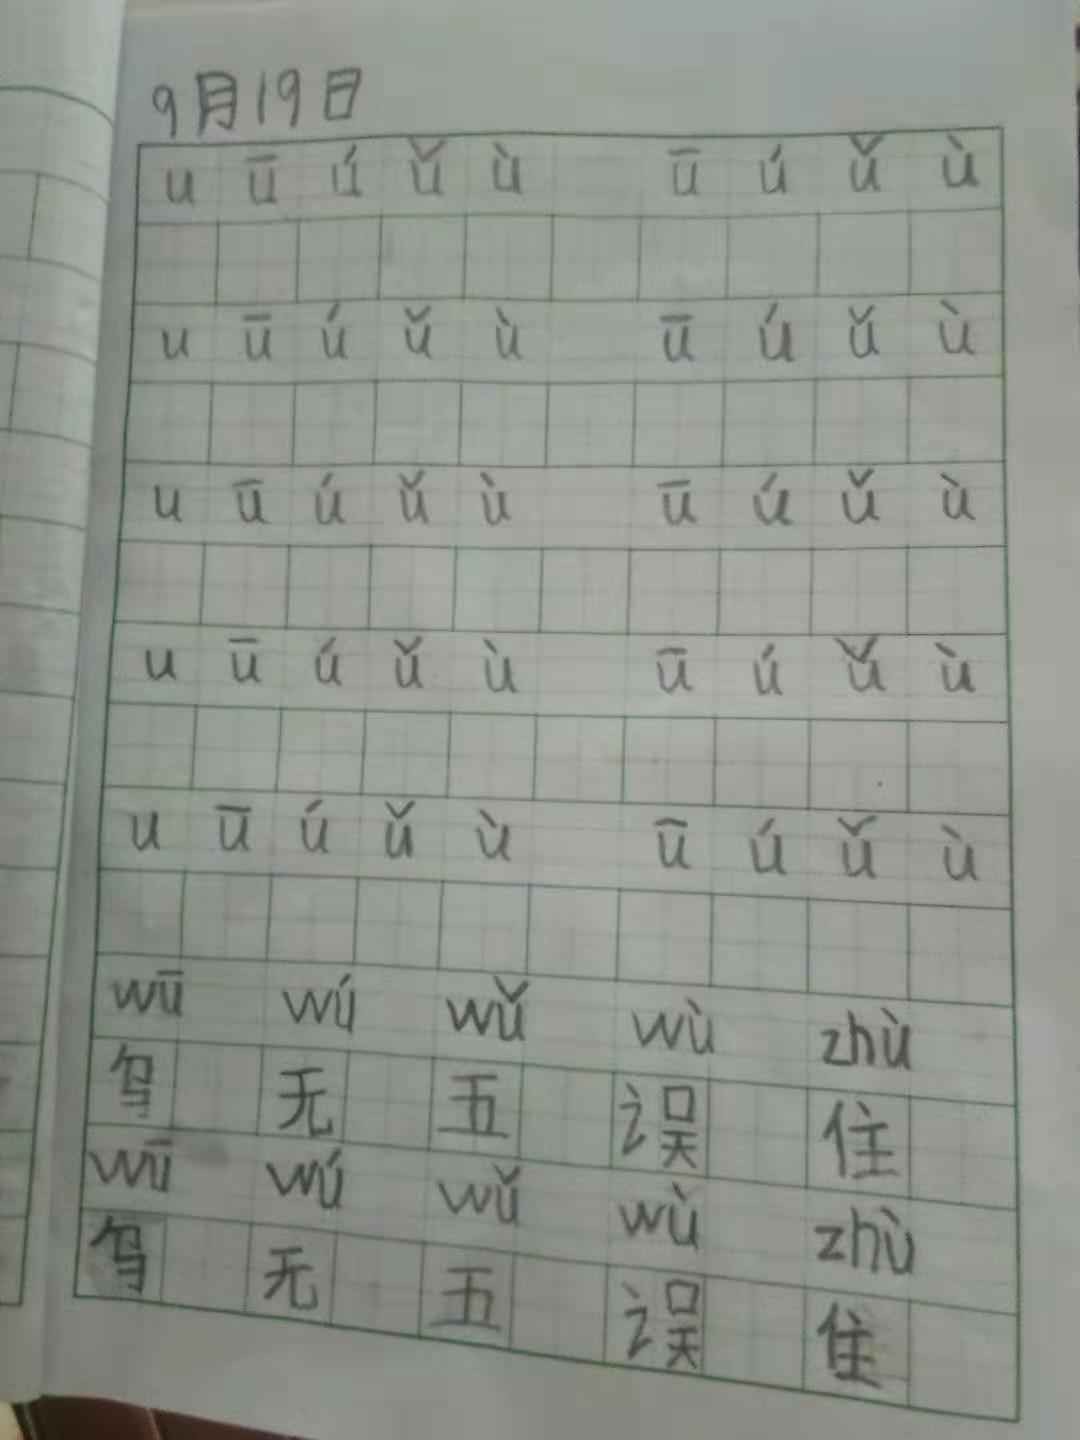 9月19日
u ū ú ǔ ù ū ú ǔ ù
u ū ú ǔ ù ū ú ǔ ù
u ū ú ǔ ù ū ú ǔ ù
u ū ú ǔ ù ū ú ǔ ù
u ū ú ǔ ù ū ú ǔ ù
wū wú wǔ wù zhù
乌 无 五 误 住
wū wú wǔ wù zhù
乌 无 五 误 住